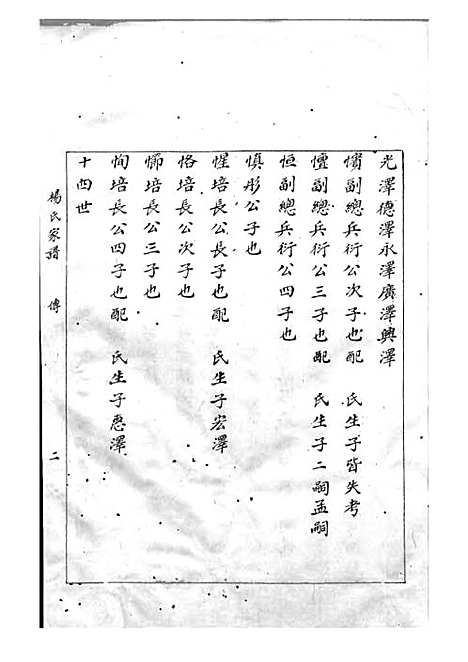 光澤德澤永澤廣澤興澤
懫副總兵衍公次子也配 氏生子皆失考
憻副總兵衍公三子也配 氏生子二嗣孟嗣
恒副總兵衍公四子也
慎彤公子也
惺培長公長子也配 氏生子宏澤
恪培長公次子也
恦培長公三子也
恂培長公四子也配 氏生子惠澤
十四世
楊氏家譜 傳 二